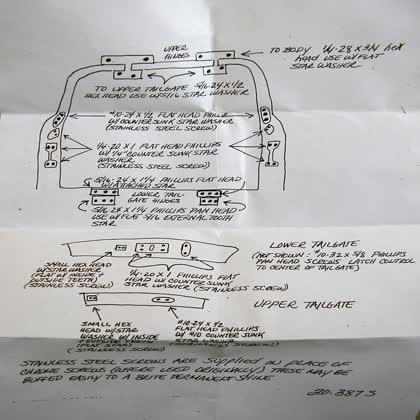 UPPER
HINGES
TO BODY 1/4-28 X 3/4 hex
head USE W/FLAT
STAR WASHER
TO UPPER TAILGATE 5/16-24 X 1/2
HEX HEAD USE W/5/16 STAR WASHER
#10-24 X 1/2 FLAT HEAD PHILLIP
W/COUNTERSUNK STAR WASHER
(STAINLESS STEEL SCREW)
1/4-20 X 1 FLAT HEAD PHILLIPS
W/ 1/4" COUNTER SUNK STAR
WASHER
(STAINLESS STEEL SCREW)
5/16-24 X 1 1/4 PHILLIPS FLAT HEAD
W/ATTACHED STAR
LOWER TAIL-
GATE HINGES
5/16-24 X 1 1/4 PHILLIPS PAN HEAD
USE W/FLAT 5/16 EXTERNAL TOOTH
STAR
LOWER TAILGATE
(NOT SHOWN: #10-32 X 5/8 PHILLIPS
PAN HEAD SCREWS LATCH CONTROL
TO CENTER OF TAILGATE)
SMALL HEX HEAD
W/STAR WASHER
(FLAT W/INSIDE/
OUTSIDE TEETH)
(STAINLESS SCREW)
1/4-20 X 1 PHILLIPS FLAT
HEAD W/COUNTER SUNK
STAR WASHER (STAINLESS SCREW)
UPPER TAILGATE
SMALL HEX
HEAD W/STAR
WASHER W/INSIDE
(FLAT STAR)
(STAINLESS SCREW)
#10-24 X 1/2
FLAT HEAD PHILLIPS
W/ #10 COUNTER SUNK
STAR WASHER
(STAINLESS SCREW)
STAINLESS STEEL SCREWS ARE SUPPLIED IN PLACE OF
CHROME SCREWS (WHERE USED ORIGINALLY) THESE MAY BE
BUFFED EASILY TO A BRITE PERMANENT SHINE
20.387S